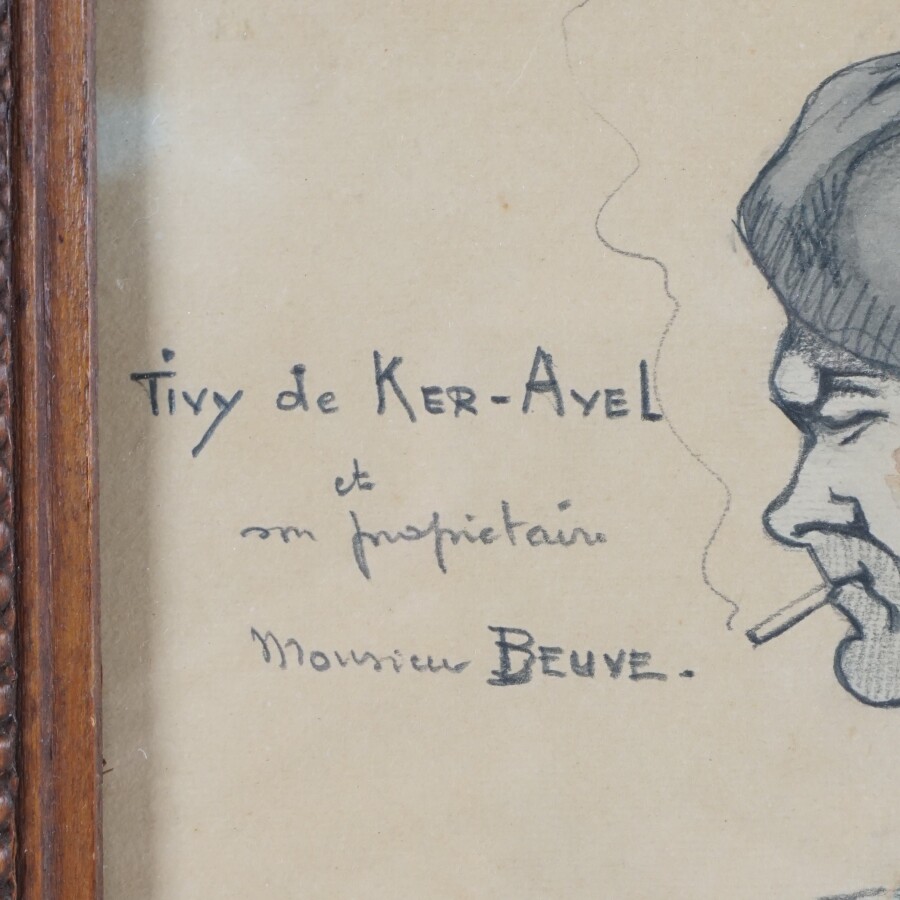 Tivy de KER-AVEL
et
son propietaire
Monsieur BEUVE.